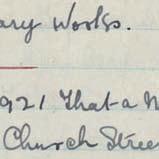 ary Works.
921 That a
Church Stree